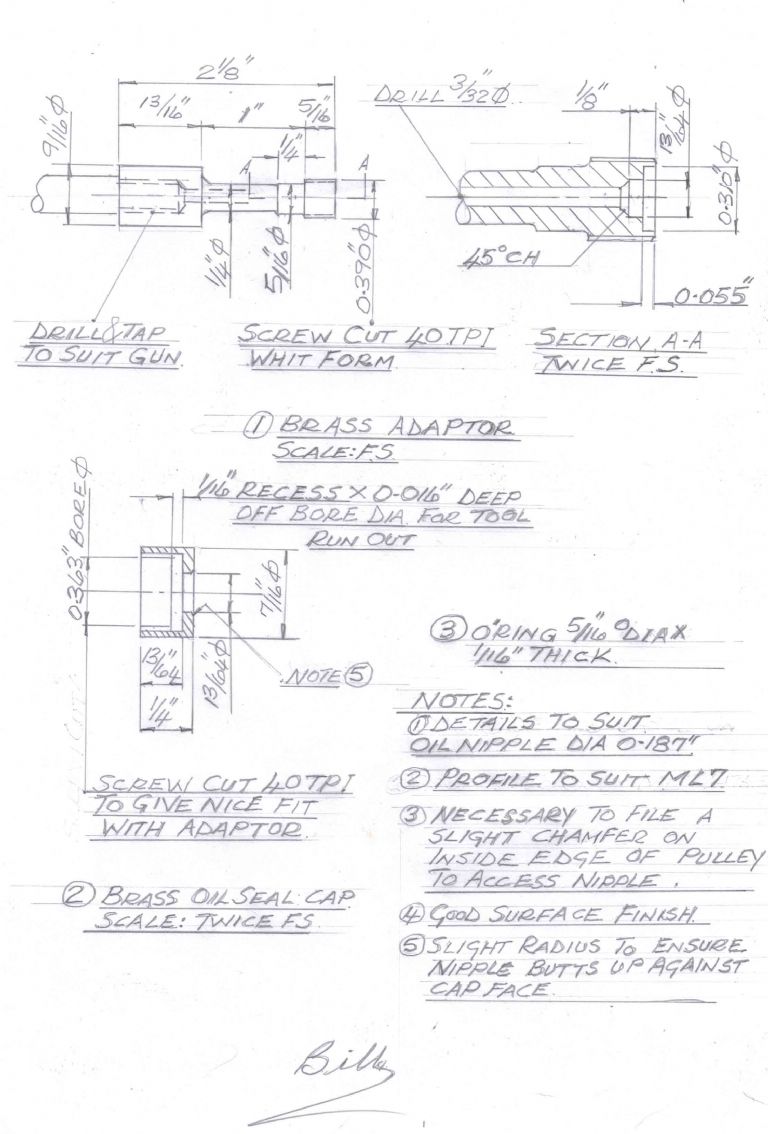 2 1/8"
13/16"
1"
5/16"
1/4"
9/16"Φ
A
A
1/4"Φ
5/16"Φ
0·390"Φ
DRILL & TAP
TO SUIT GUN
SCREW CUT 40TPI
WHIT FORM
DRILL 3/32"Φ
1/8"
13/64"Φ
0·310"Φ
45° CH
0·055"
SECTION A-A
TWICE F.S.
① BRASS ADAPTOR
SCALE: F.S.
1/16" RECESS X 0·016" DEEP
OFF BORE DIA. FOR TOOL
RUN OUT
0·363" BORE Φ
7/16"Φ
13/64"
13/64"Φ
1/4"
NOTE ⑤
SCREW CUT 40TPI
TO GIVE NICE FIT
WITH ADAPTOR
② BRASS OIL SEAL CAP
SCALE: TWICE FS
③ O'RING 5/16" O DIA X
1/16" THICK.
NOTES:
① DETAILS TO SUIT
OIL NIPPLE DIA 0·187"
② PROFILE TO SUIT ML7
③ NECESSARY TO FILE A
SLIGHT CHAMFER ON
INSIDE EDGE OF PULLEY
TO ACCESS NIPPLE.
④ GOOD SURFACE FINISH.
⑤ SLIGHT RADIUS TO ENSURE
NIPPLE BUTTS UP AGAINST
CAP FACE.